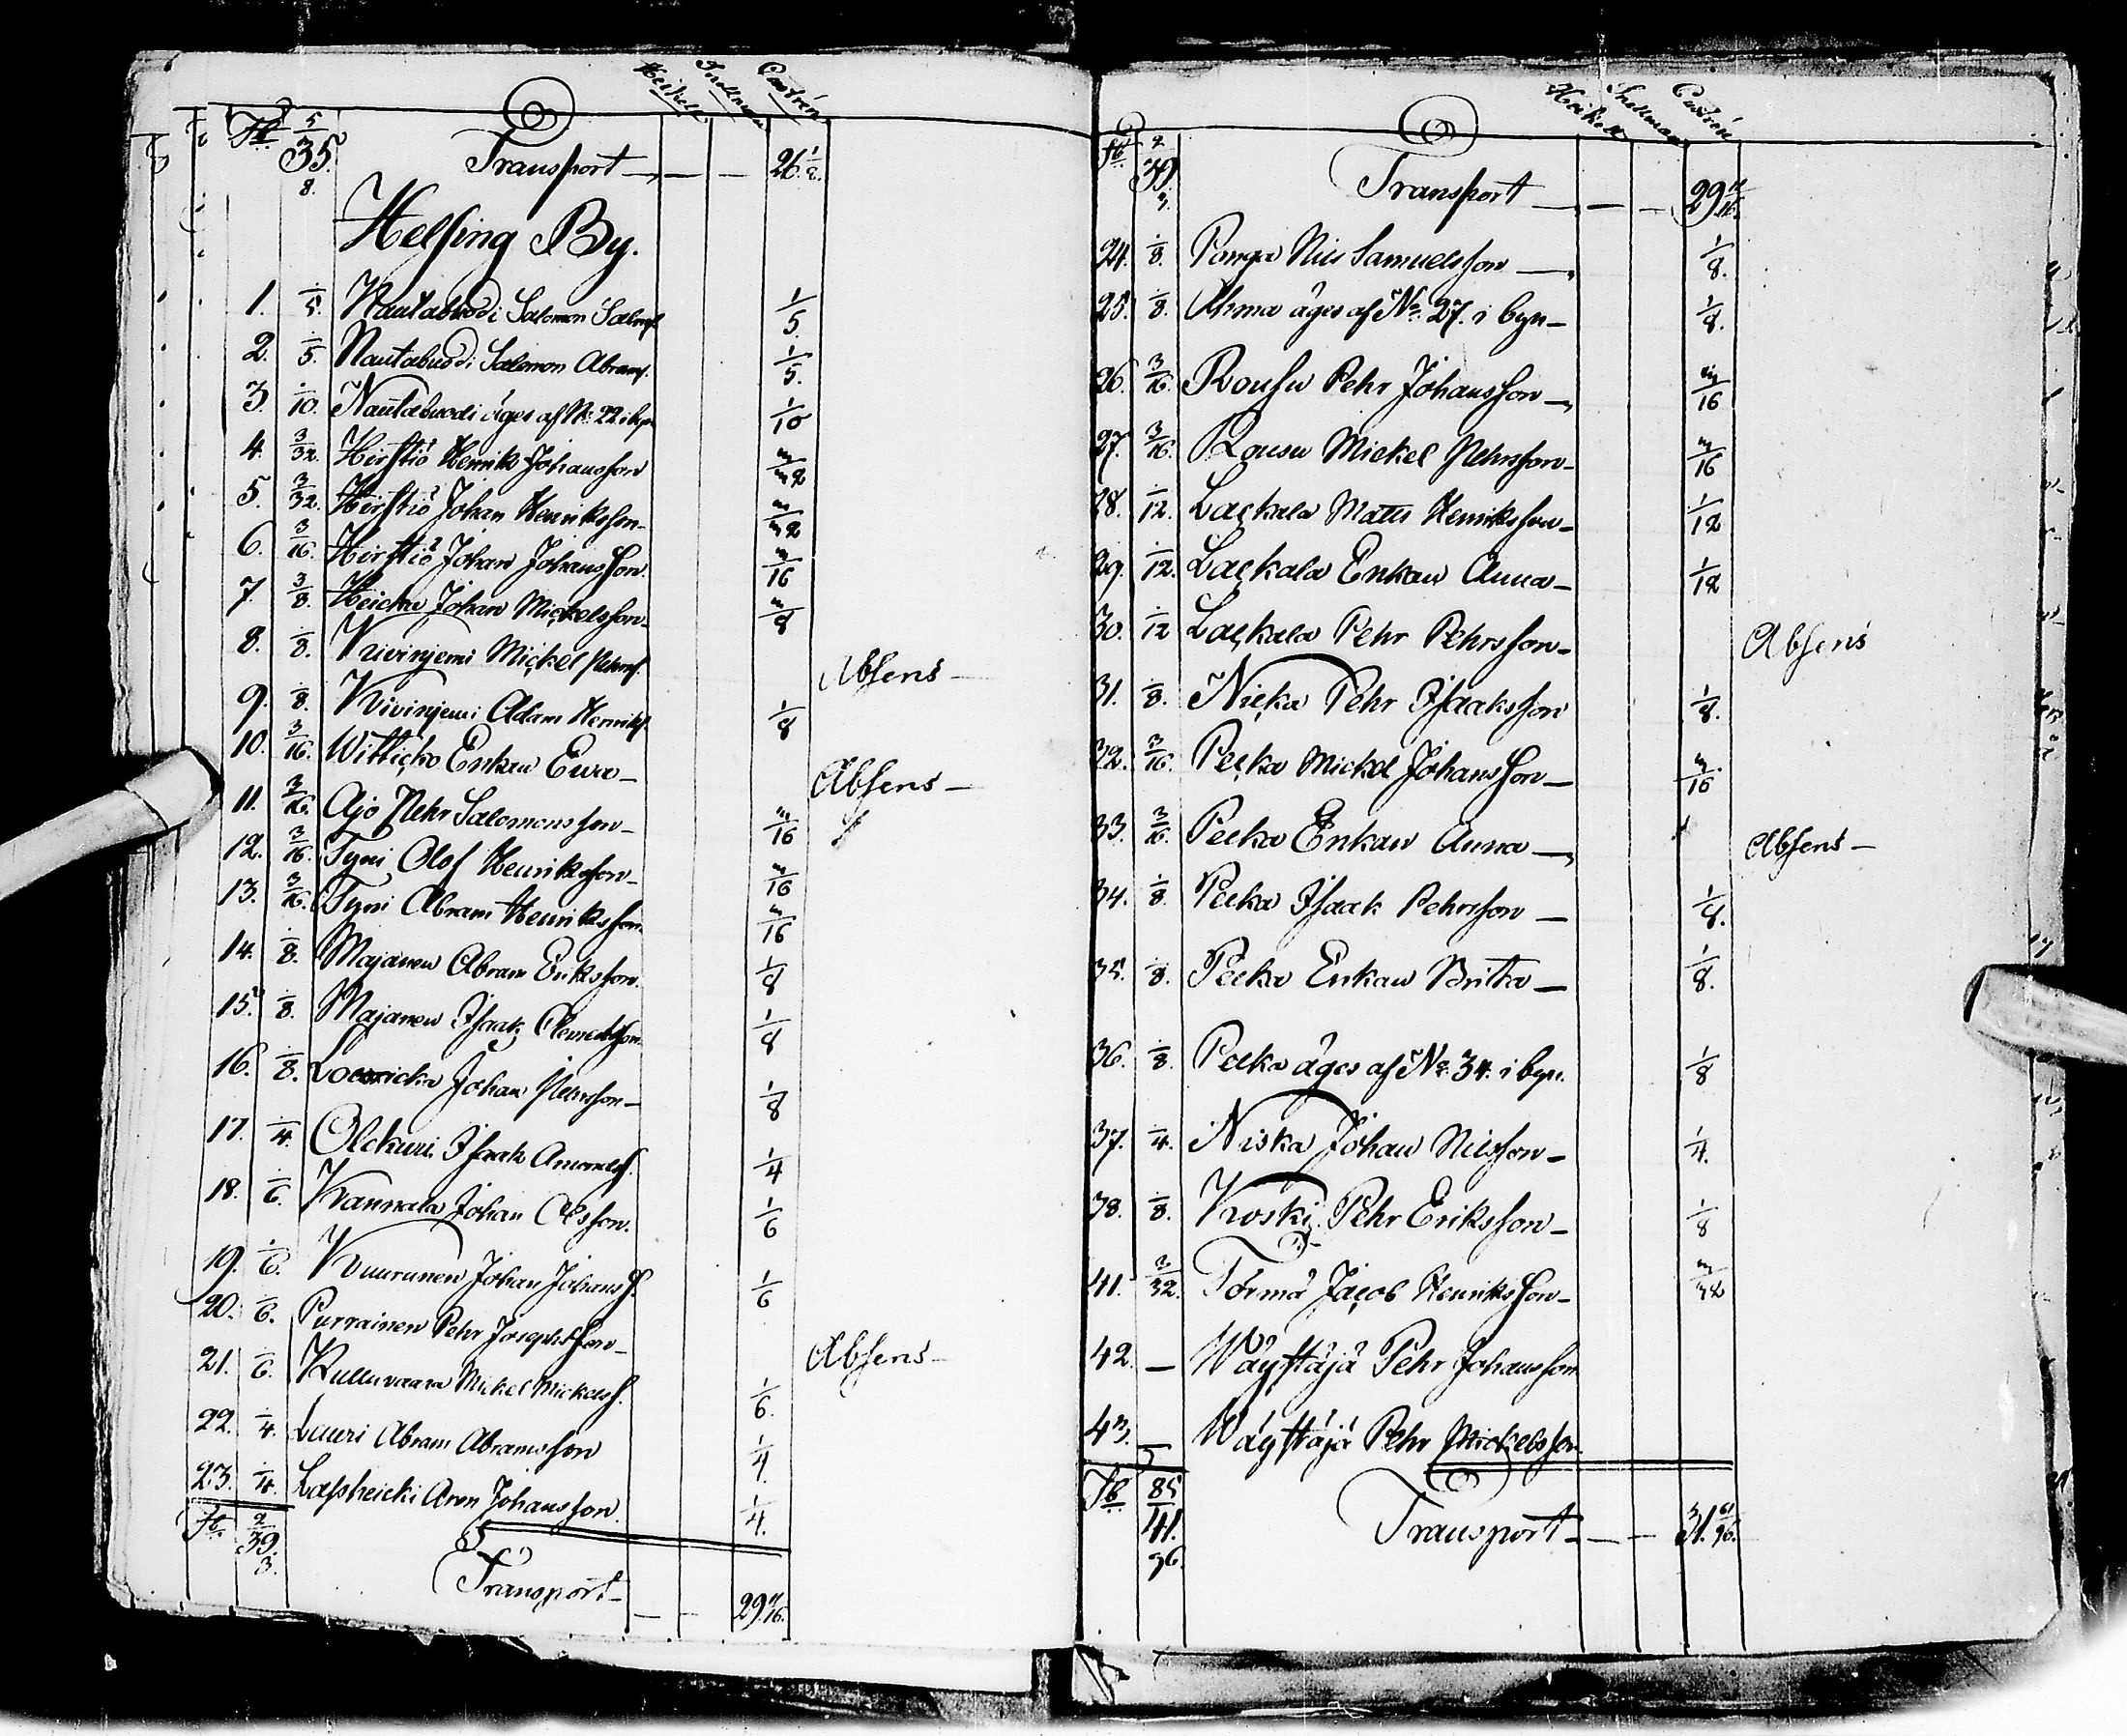 Heikell Snellman Castrén
35 5/8. Transport — — — 26 1/2.
Helsing By.
1. 1/5. Nautabuodi Salomon Salomss. 1/5.
2. 1/5. Nautabuodi Salomon Abrams. 1/5.
3. 1/10. Nautabuodi äges af No. 22 i byn 1/10
4. 3/32. Hirstiö Henrik Johansson 3/32
5. 3/32. Hirstiö Johan Henriksson 3/32
6. 3/16. Hirstiö Johan Johansson 3/16
7. 3/8. Heicka Johan Mickelsson 3/8
8. 1/8. Kivinjemi Mickel Pehrss. Absens —
9. 1/8. Kivinjemi Adam Henrikss. 1/8
10. 3/16. Witticko Enkan Ewa — Absens —
11. 3/16. Ajo Pehr Salomonsson — 3/16
12. 3/16. Tyni Olof Henriksson — 3/16
13. 3/16. Tyni Abram Henriksson 3/16
14. 1/8. Majanen Abram Eriksson. 1/8
15. 1/8. Majanen Isaak Clemetsson. 1/8
16. 1/8. Johan Pehrsson — 1/8
17. 1/4. Olckuri Isaak 1/4
18. 1/6. Kannala Johan Olsson. 1/6
19. 1/6. Kuurunen Johan Johanss. 1/6
20. 1/6. Purrainen Pehr Josephsson — Absens —
21. 1/6. Kulluvaara Mickel Mickelss. 1/6.
22. 1/4. Lauri Abram Abramsson 1/4.
23. 1/4. Lassheicki Aron Johansson. 1/4.
39. 2/3. Transport — — — 29 11/16.
Heikell Snellman Castrén
39 2/3. Transport — — — 29 11/16.
24. 1/8. Pomga Nils Samuelsson — 1/8.
25. 1/8. Ahma äges af No. 27. i byn — 1/8.
26. 3/16. Rousu Pehr Johansson — 3/16
27. 3/16. Rousu Mickel Pehrsson — 3/16
28. 1/12. Lackala Matts Henriksson — 1/12
29. 1/12. Lackala Enkan Anna — 1/12
30. 1/12 Lackala Pehr Pehrsson — Absens
31. 1/8. Nicka Pehr Isaksson 1/8.
32. 3/16. Pecka Mickel Johansson — 3/16
33. 3/16. Pecka Enkan Anna — Absens —
34. 1/8 Pecka Isaak Pehrsson — 1/8.
35. 1/8. Pecka Enkan Britta — 1/8.
36. 1/8. Pecka äges af No. 34. i byn. 1/8
37. 1/4. Niska Johan Nilsson — 1/4.
38. 1/8. Koski Pehr Eriksson — 1/8
41. 3/32. Törmä Jacob Henriksson — 3/32
42. — Wäystäjä Pehr Johansson
43. — Wäystäjä Pehr Mickelsson.
41. 85/96. Transport — — — 31. 61/96.